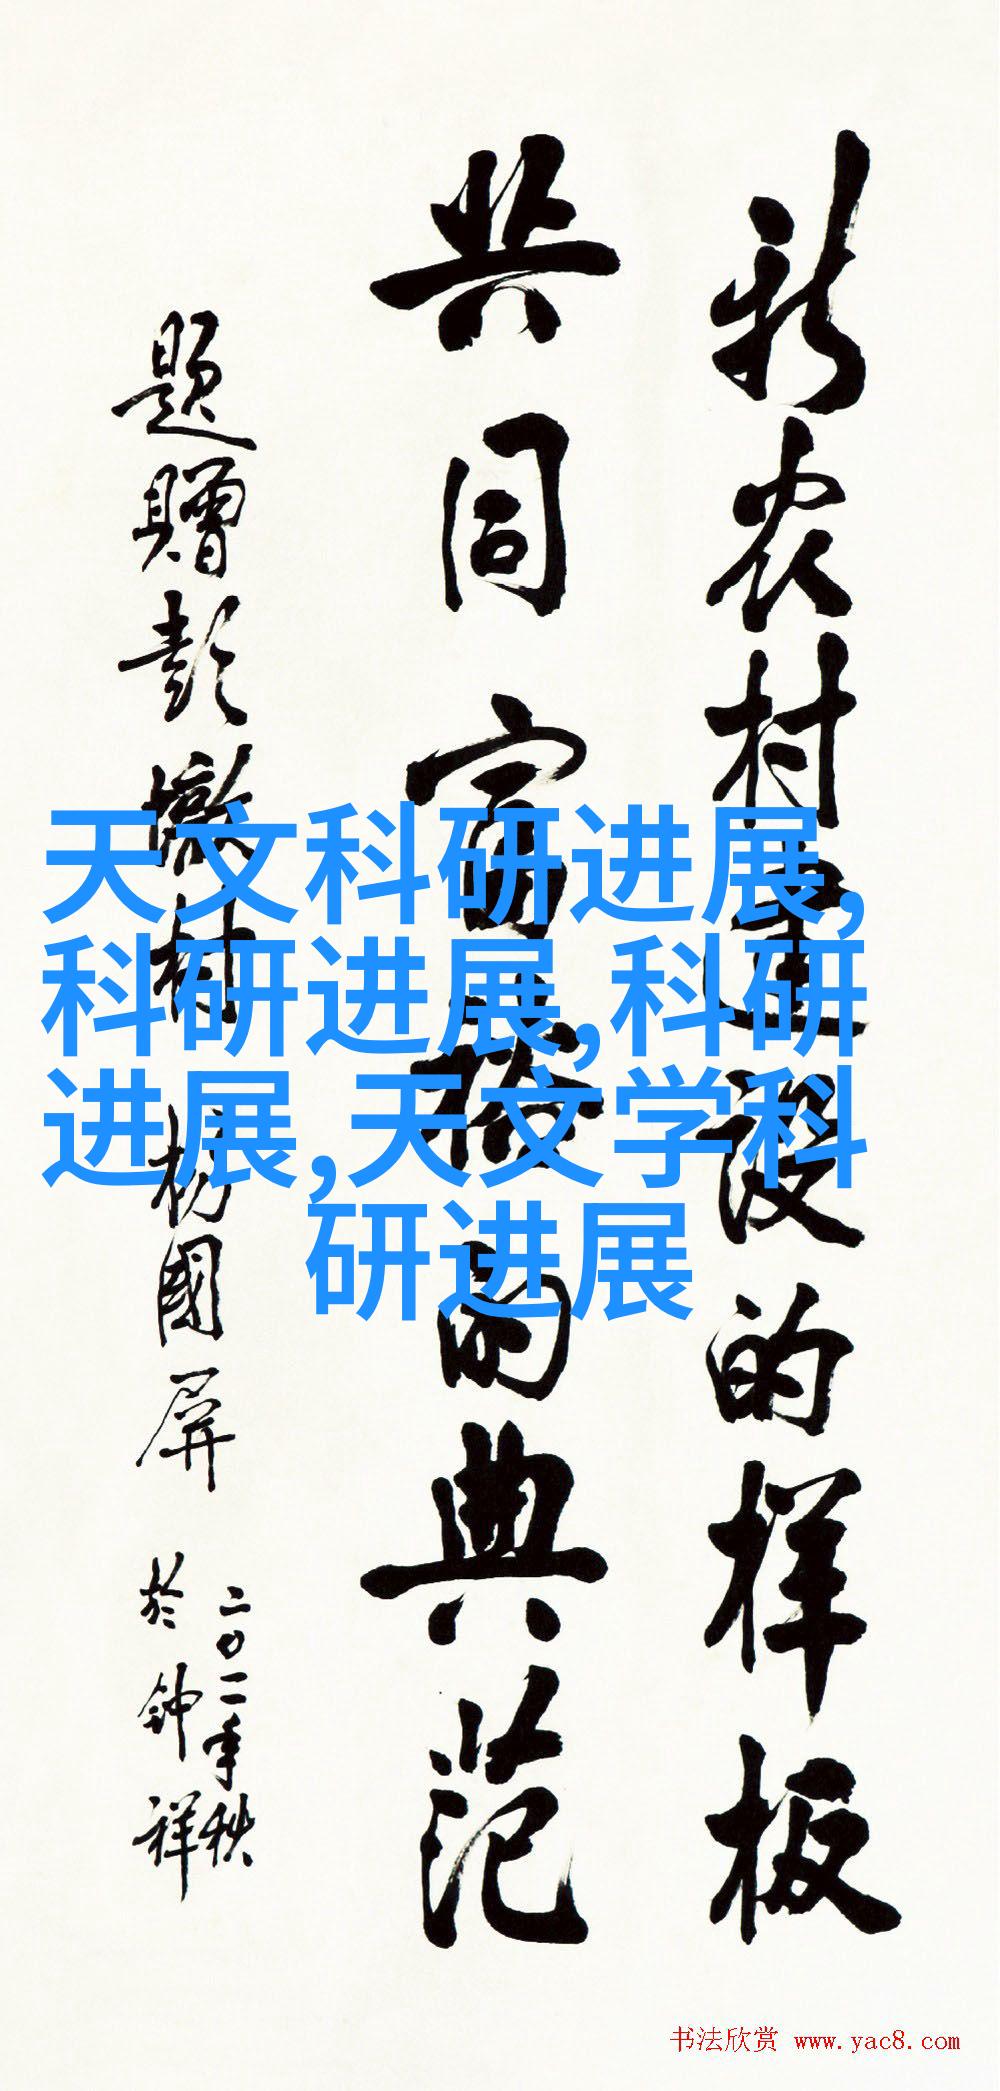 新农村建设的样板
共同富裕的典范
题赠彭墩村 杨国屏
二〇一一年秋
於钟祥
天文科研进展,
科研进展,科研
进展,天文学科
研进展
书法欣赏 www.yac8.com